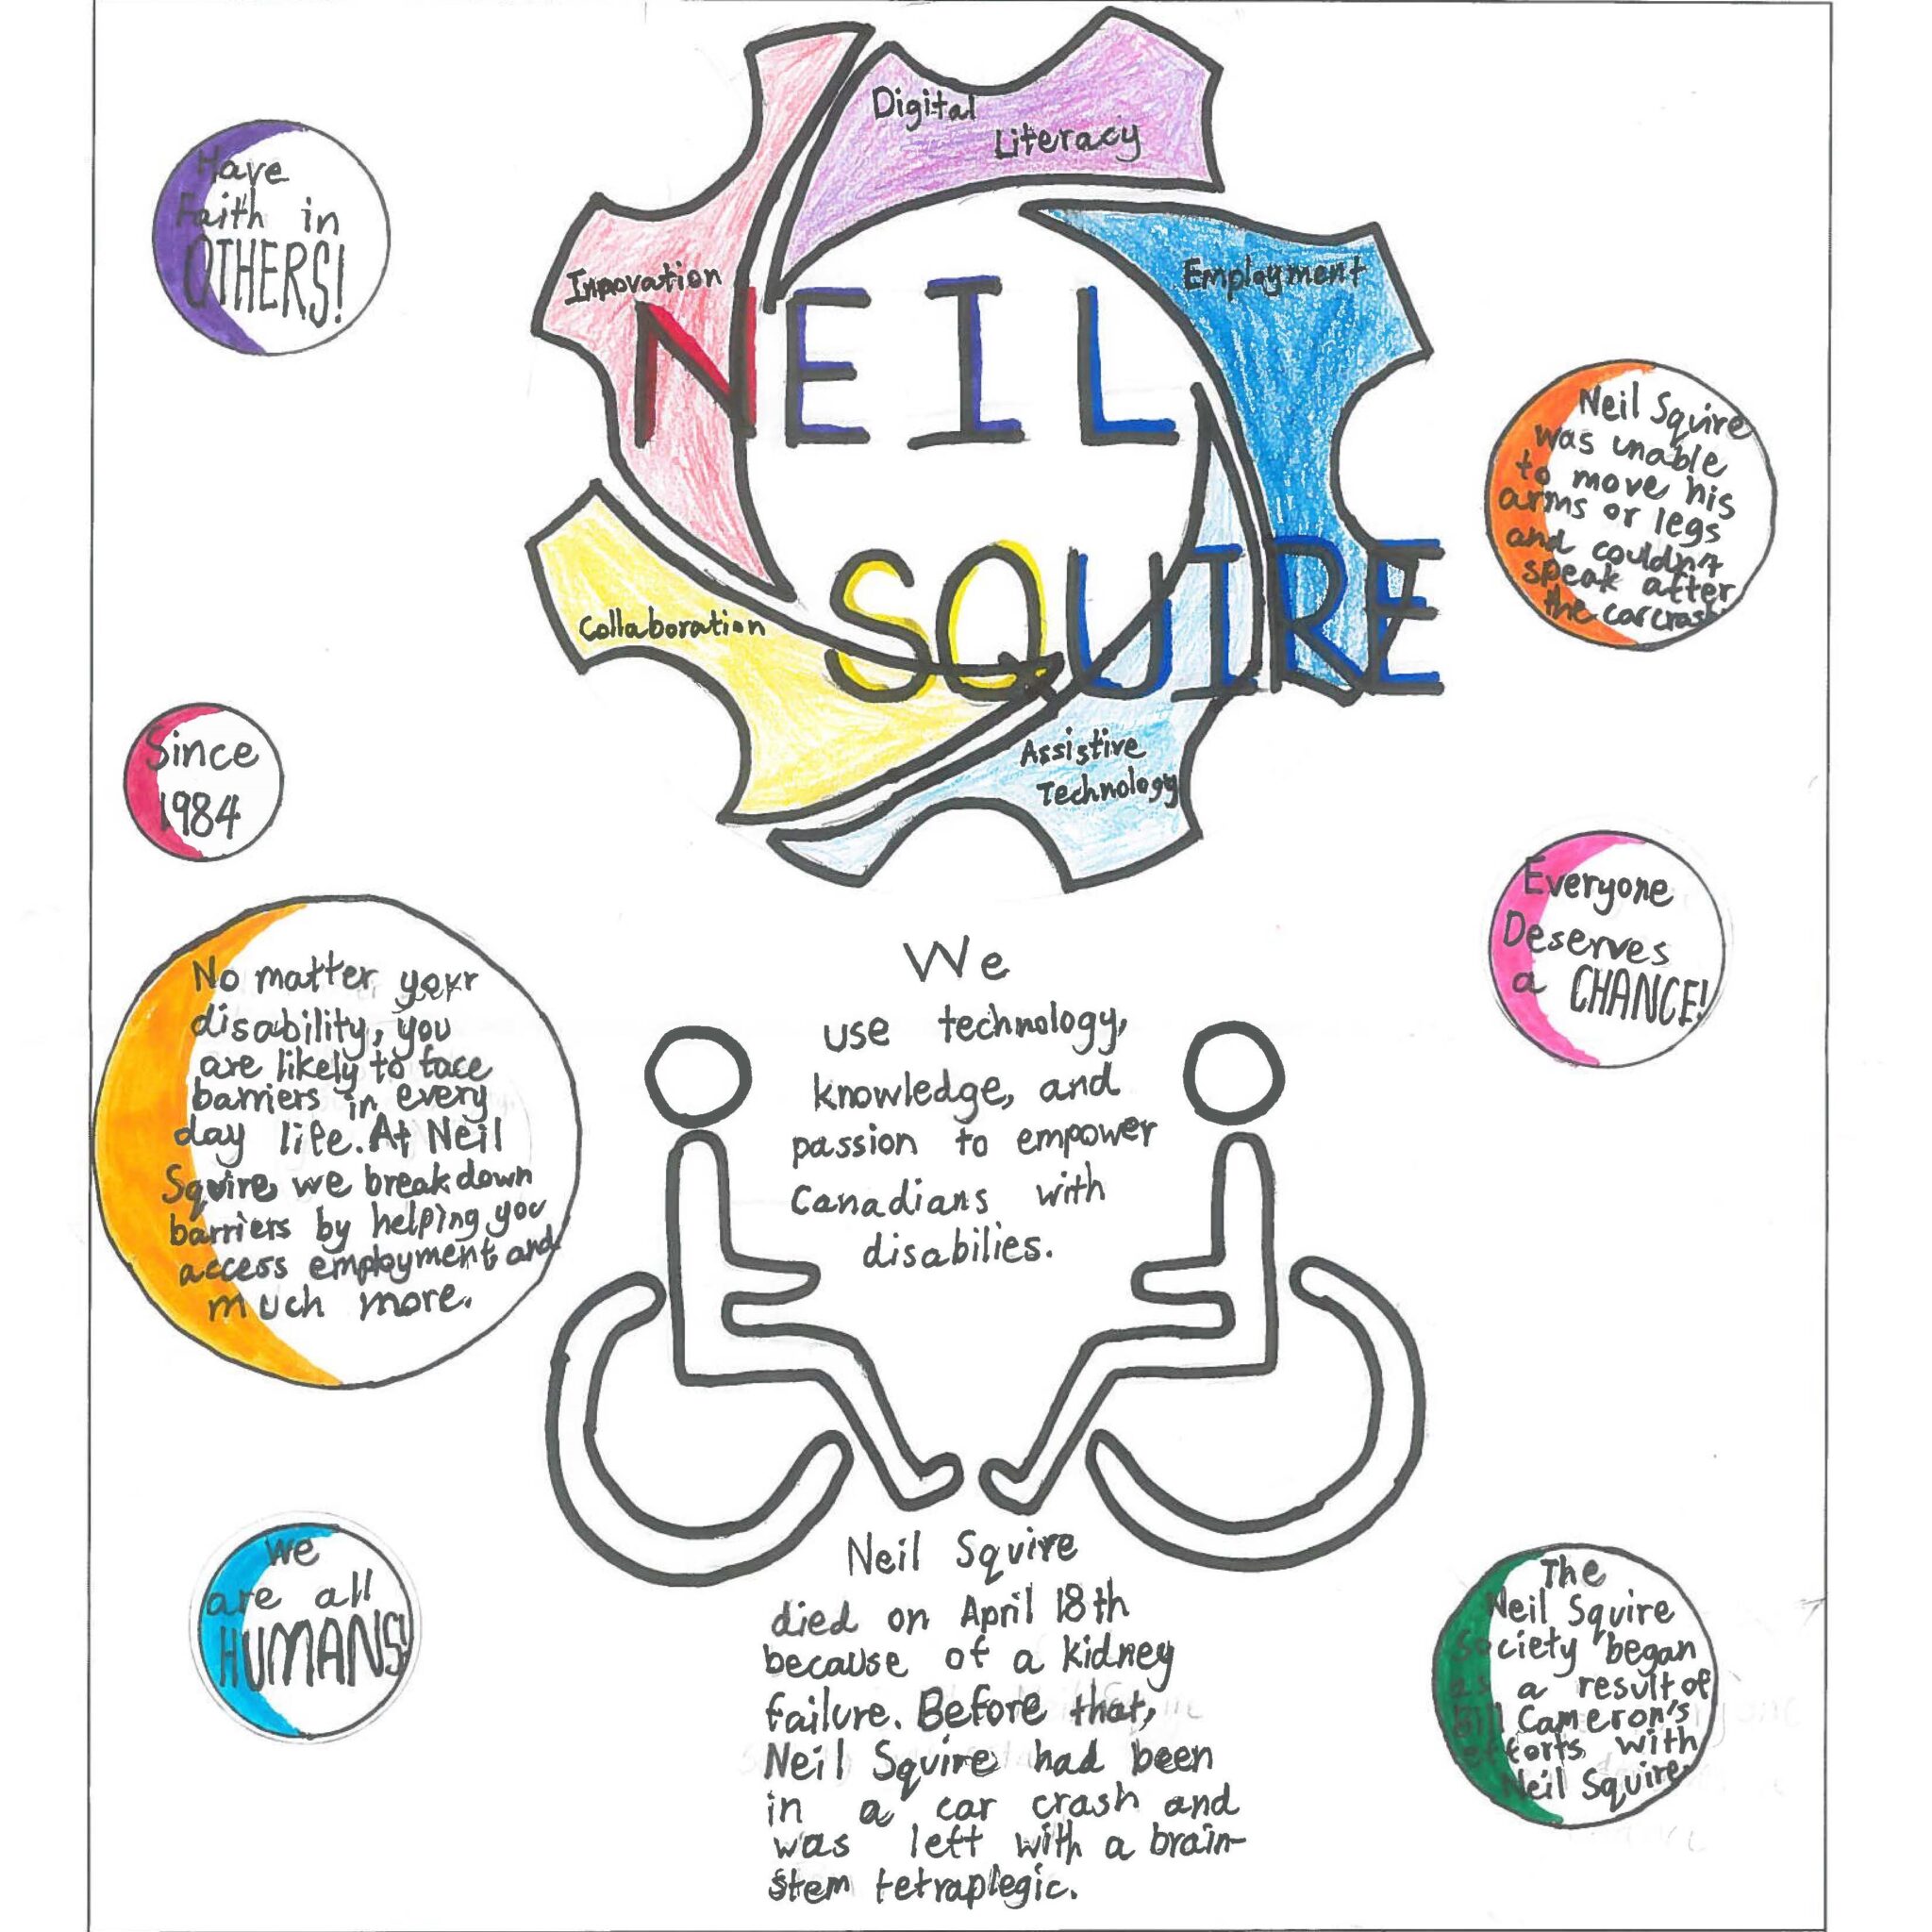 Have
Faith in
OTHERS!
Digital
Literacy
Innovation
Employment
NEIL
SQUIRE
Collaboration
Assistive
Technology
Neil Squire
was unable
to move his
arms or legs
and couldn't
speak after
the car crash
Since
1984
Everyone
Deserves
a CHANCE!
No matter your
disability, you
are likely to face
barriers in every
day life. At Neil
Squire, we break down
barriers by helping you
access employment and
much more.
We
use technology,
knowledge, and
passion to empower
Canadians with
disabilies.
We
are all
HUMANS!
Neil Squire
died on April 18th
because of a kidney
failure. Before that,
Neil Squire had been
in a car crash and
was left with a brain-
stem tetraplegic.
The
Neil Squire
Society began
as a result of
Bill Cameron's
efforts with
Neil Squire.